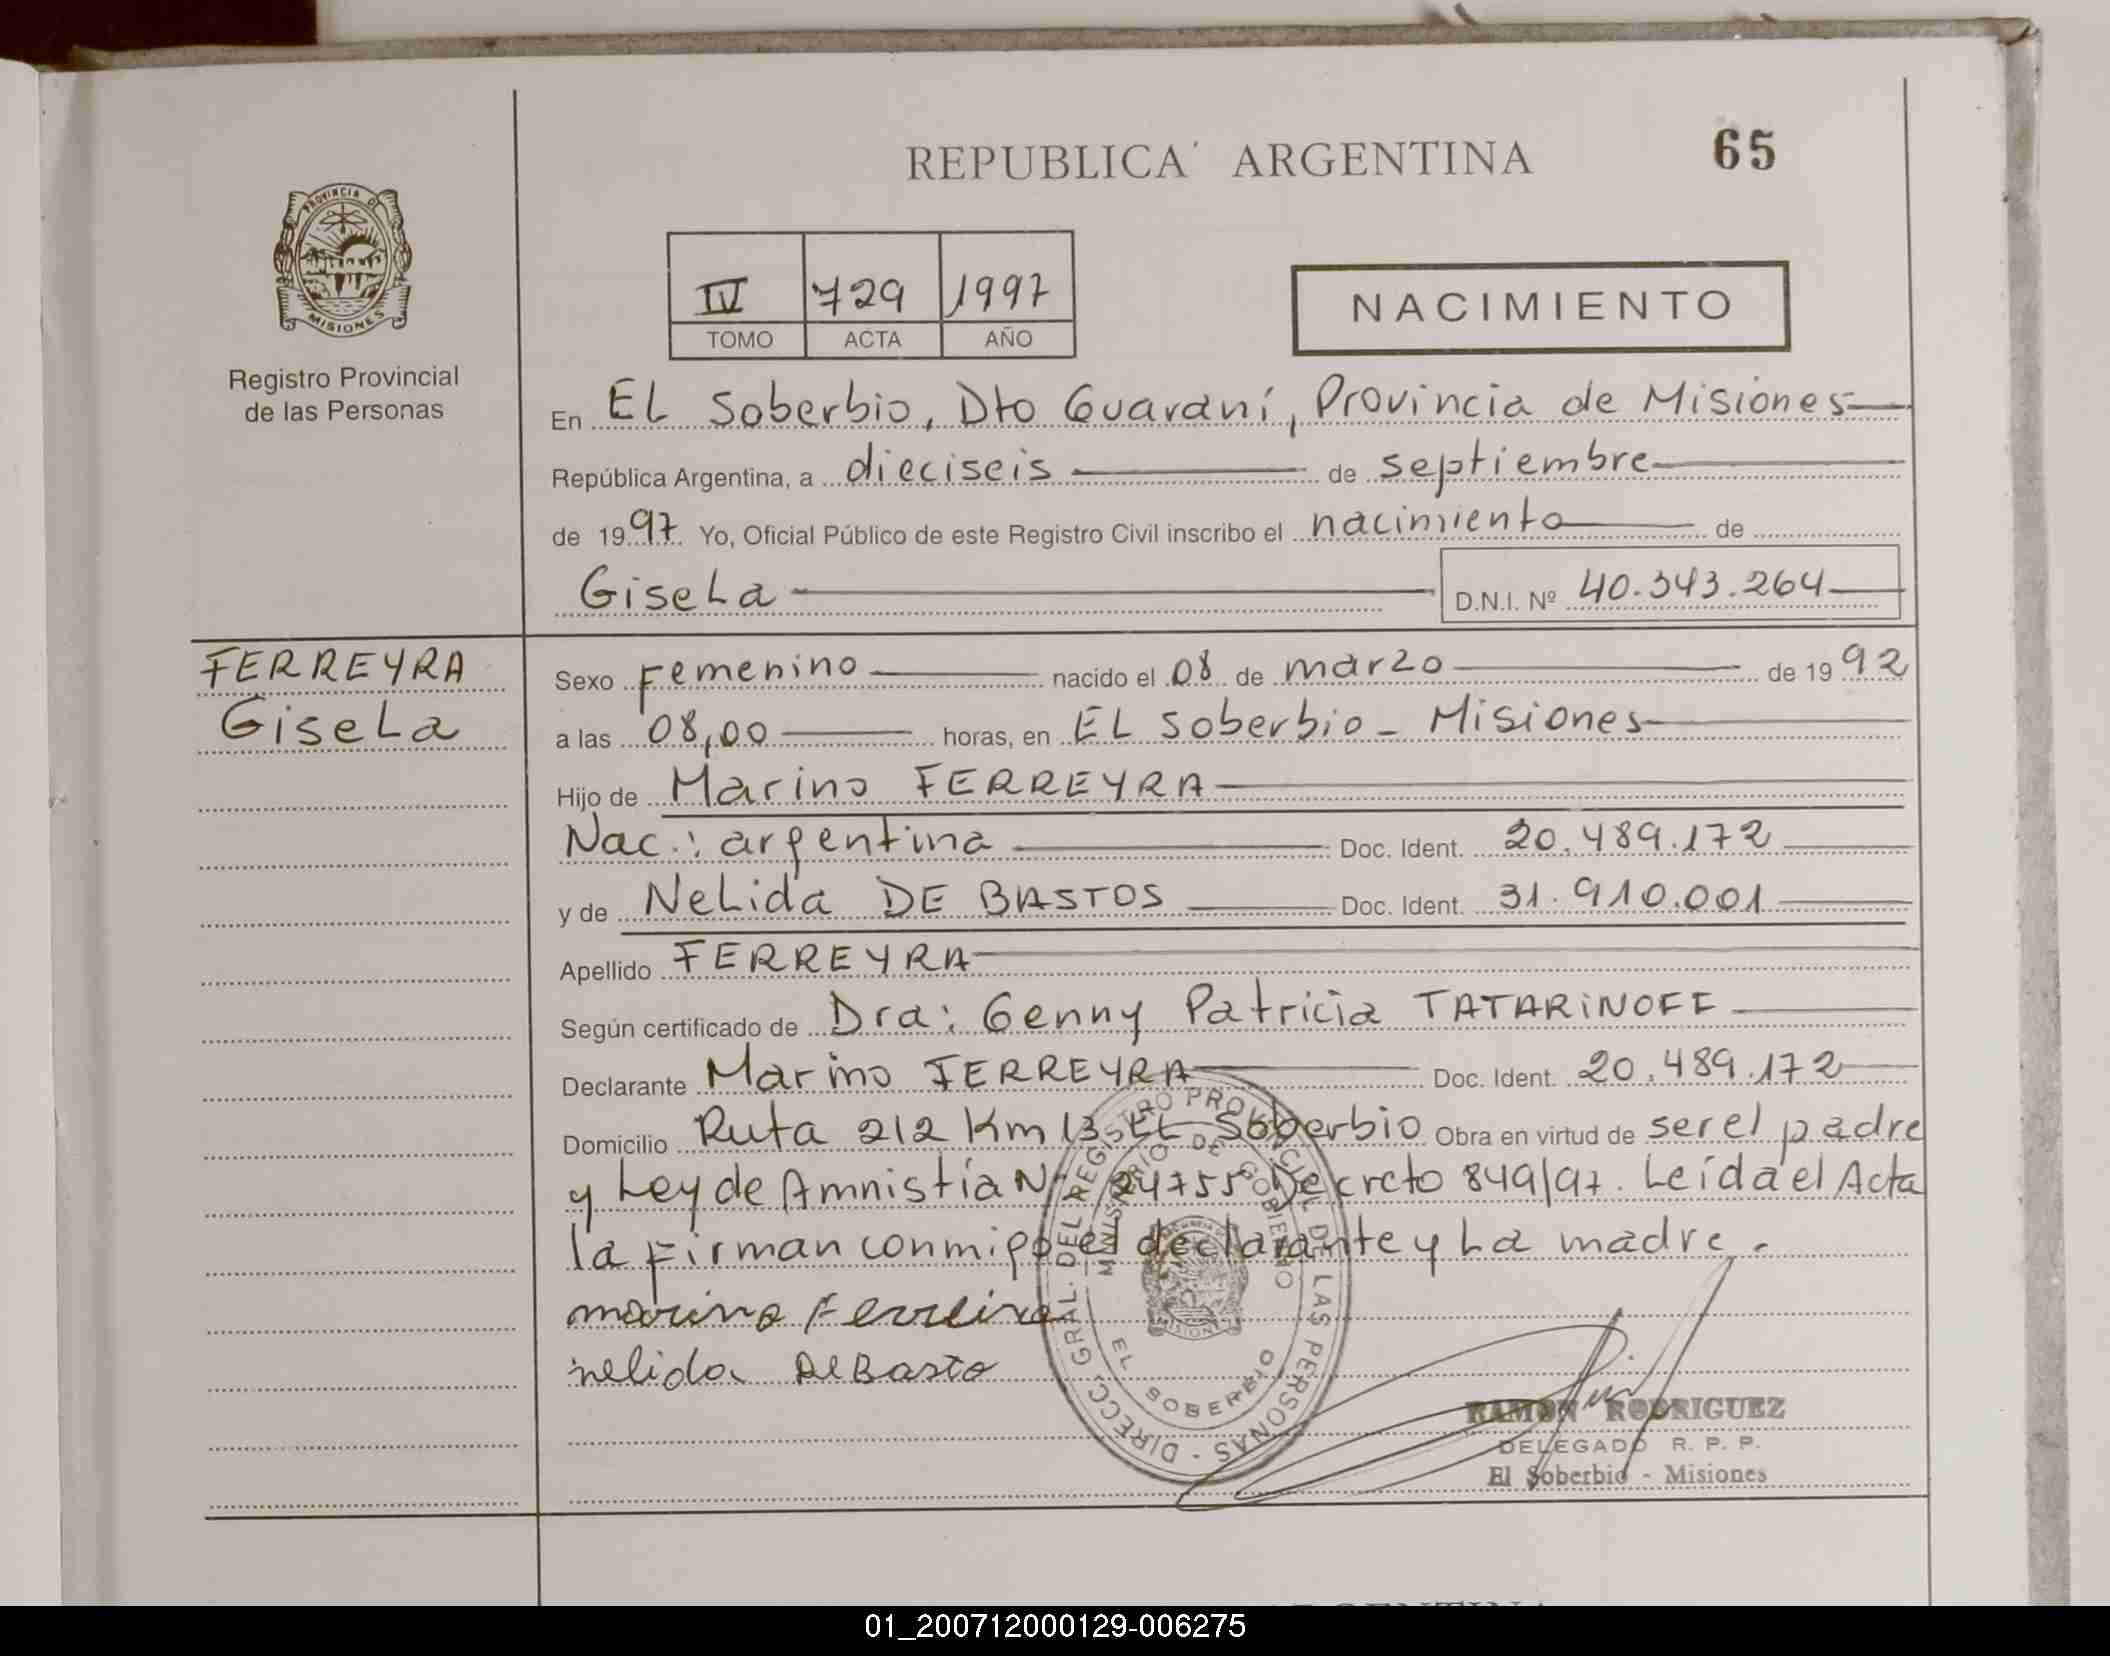 REPUBLICA ARGENTINA
65
PROVINCIA DE
MISIONES
Registro Provincial
de las Personas
IV 729 1997
TOMO ACTA AÑO
NACIMIENTO
En EL Soberbio, Dto Guaraní, Provincia de Misiones
República Argentina, a dieciseis de septiembre
de 1997 Yo, Oficial Público de este Registro Civil inscribo el nacimiento de
GiseLa D.N.I. Nº 40.343.264
FERREYRA
GiseLa
Sexo Femenino nacido el 08 de marzo de 1992
a las 08,00 horas, en EL Soberbio - Misiones
Hijo de Marino FERREYRA
Nac.: argentina Doc. Ident. 20.489.172
y de NeLida DE BASTOS Doc. Ident. 31.910.001
Apellido FERREYRA
Según certificado de Dra: Genny Patricia TATARiNOFF
Declarante Marino FERREYRA Doc. Ident. 20.489.172
Domicilio Ruta 212 Km 13 EL Soberbio Obra en virtud de ser el padre
y Ley de Amnistía Nº 24755 Decreto 849/97. Leída el Acta
la firman conmigo el declarante y La madre.
marino Ferreira
nelida DeBasto
DIRECC. GRAL. DEL REGISTRO PROVINCIAL DE LAS PERSONAS -
MINISTERIO DE GOBIERNO
MISIONES
EL SOBERBIO
RAMON RODRIGUEZ
DELEGADO R. P. P.
El Soberbio - Misiones
01_200712000129-006275